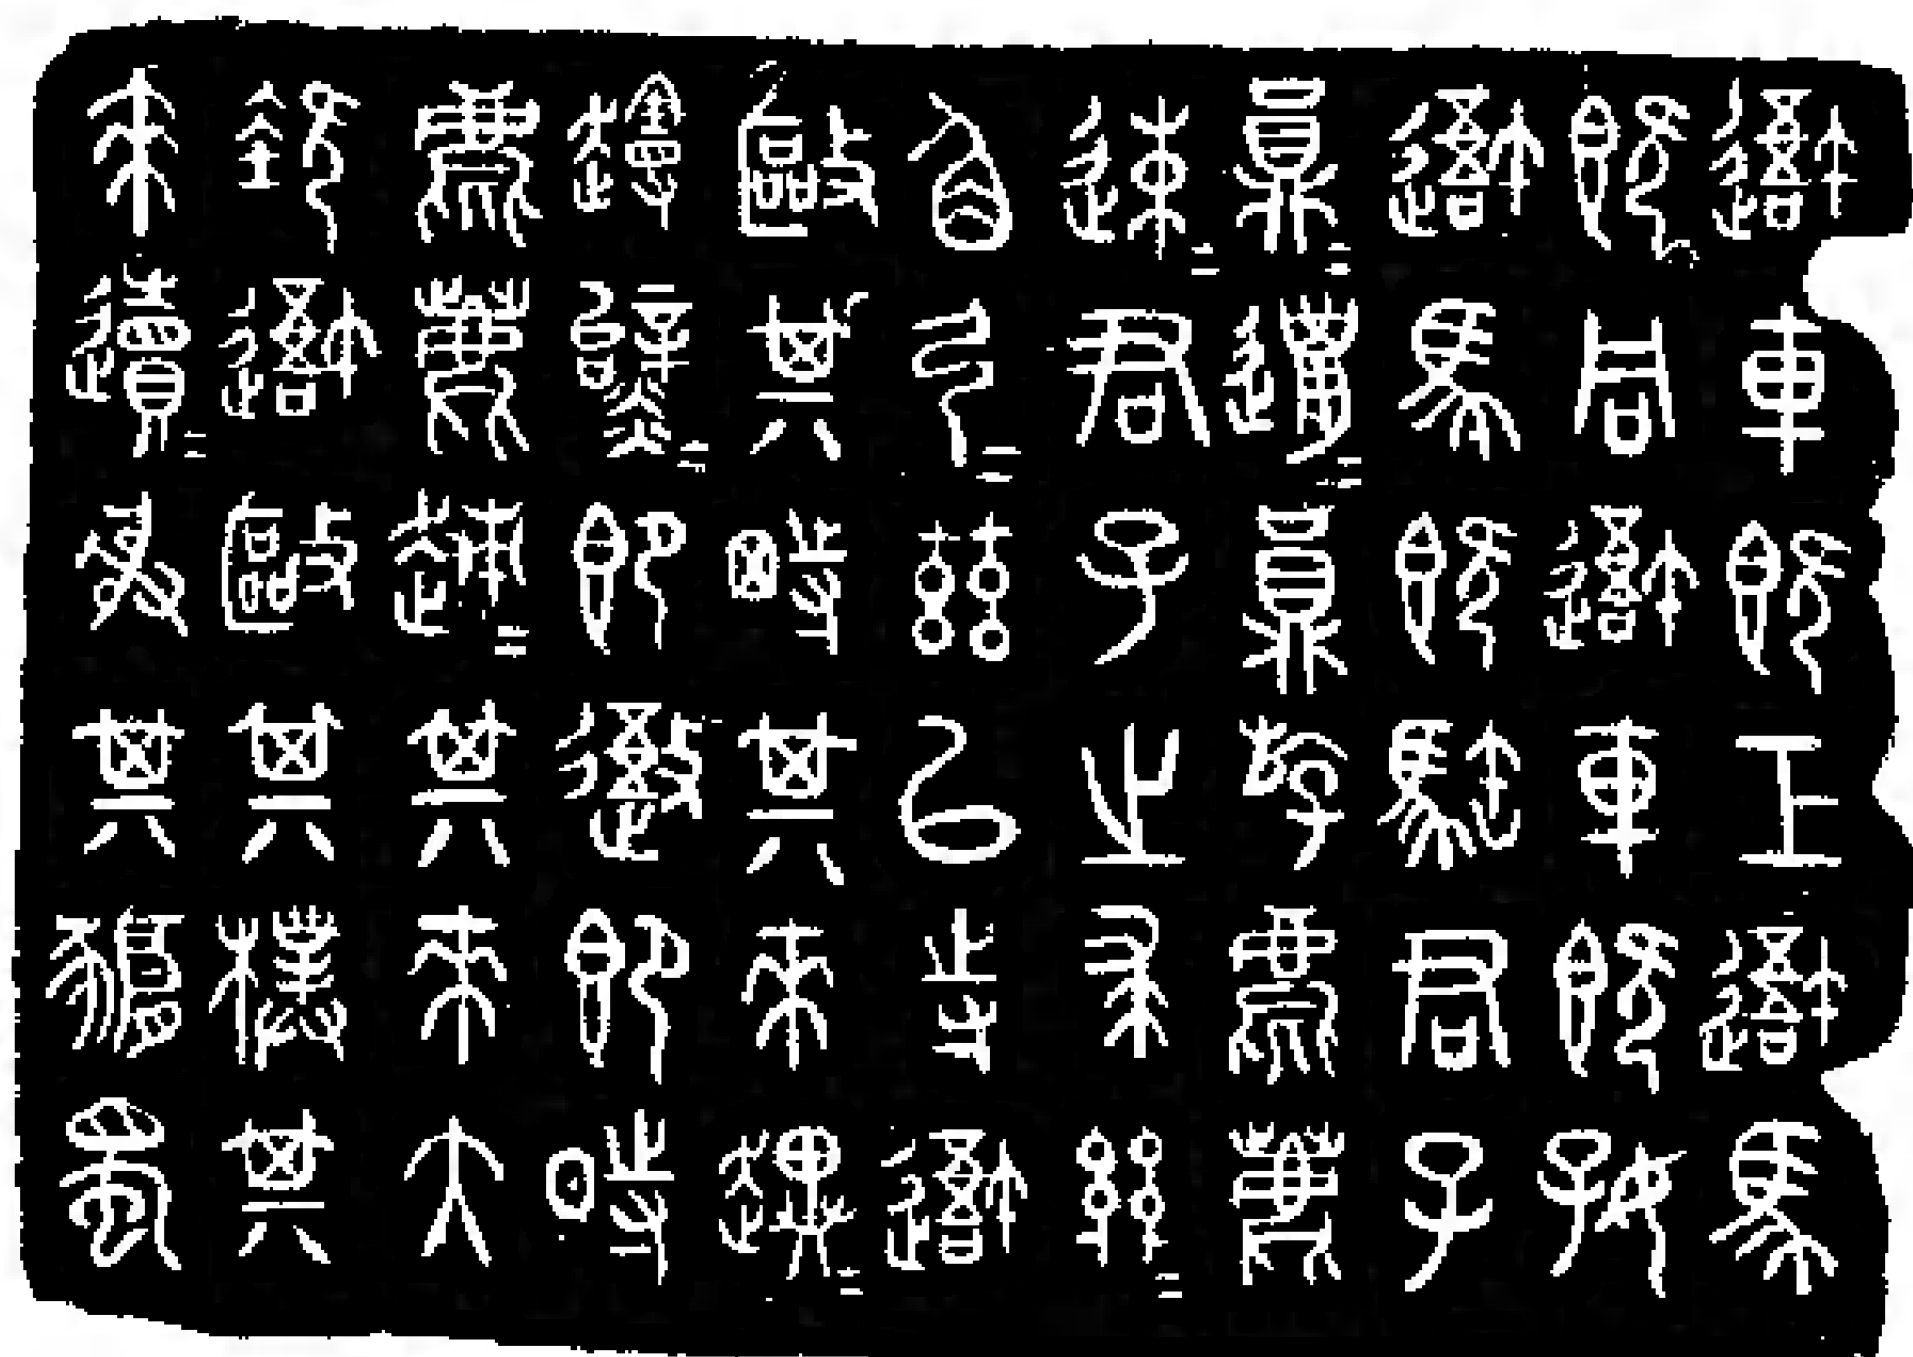 吾車既工吾馬
既同吾車既好
吾馬既駓君子
員=邋=員斿麀鹿
速=君子之求=
角弓=茲以寺吾
敺其特其來趩=
即吾即時
麀鹿趚=其來大
次吾敺其樸其
來=射其豜蜀